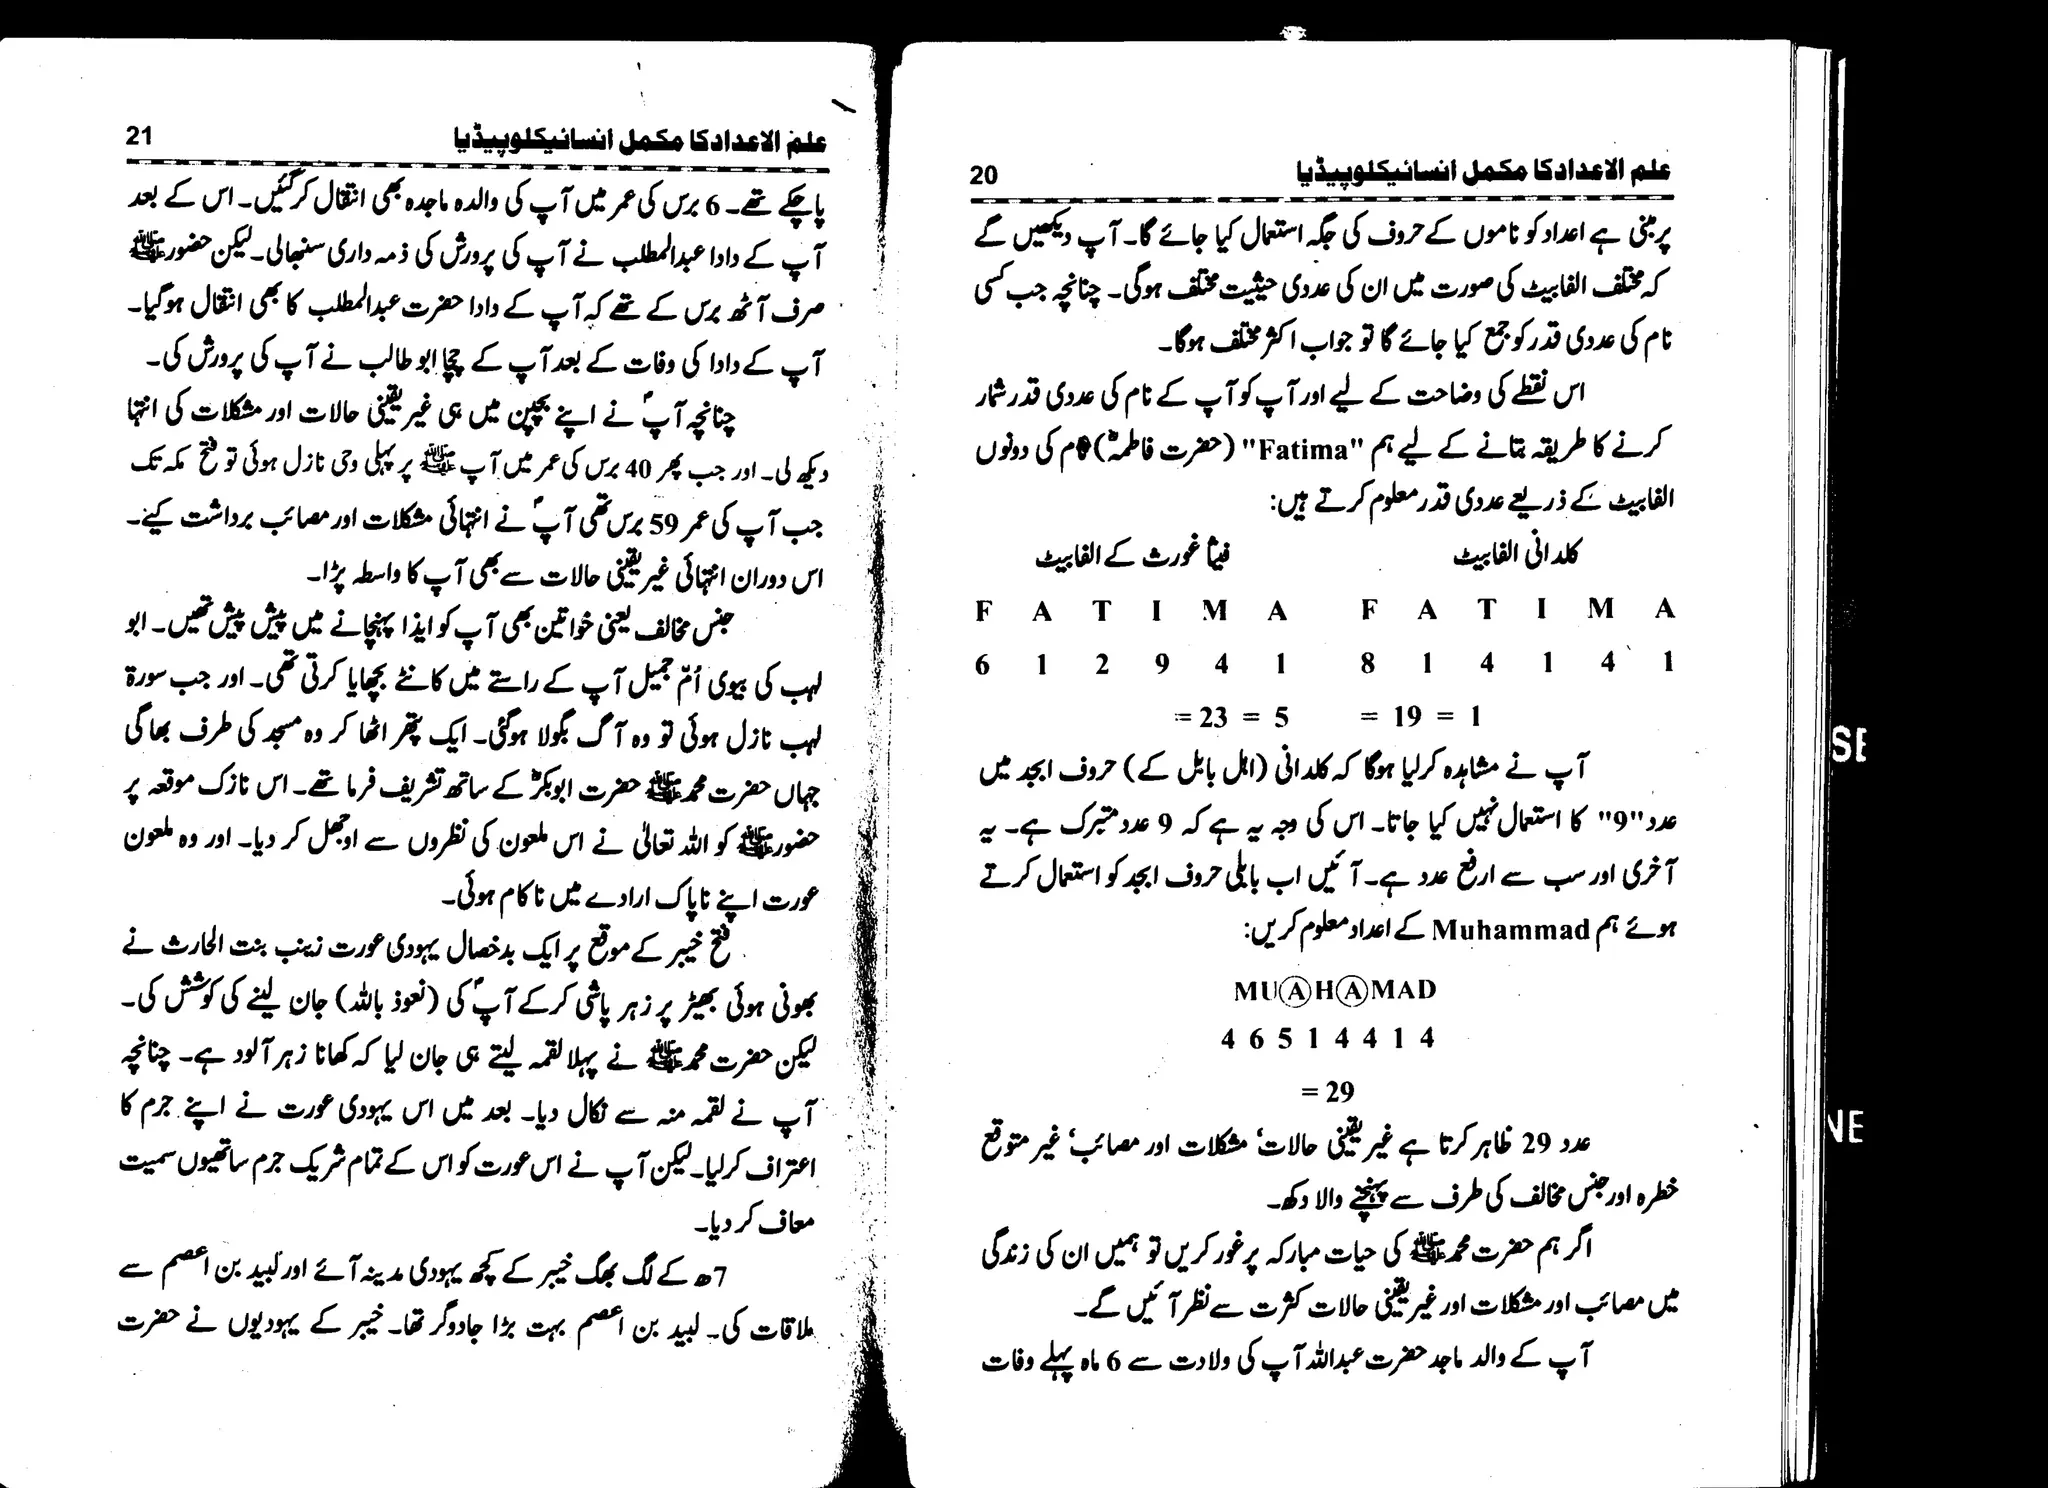 علم الاعداد کا مکمل انسائیکلوپیڈیا 20
پر مبنی ہے اعداد کو ناموں کے حروف کی جگہ استعمال کیا جائے گا۔ آپ دیکھیں گے
کہ مختلف الفابیٹ کی صورت میں ان کی عددی حیثیت مختلف ہوگی۔ چنانچہ جب کسی
نام کی عددی قدر کو جمع کیا جائے گا تو جواب اکثر مختلف ہوگا۔
اس نقطے کی وضاحت کے لیے اور آپ کو آپ کے نام کی عددی قدر شمار
کرنے کا طریقہ بتانے کے لیے ہم "Fatima" (حضرت فاطمہؓ) نام کی دونوں
الفابیٹ کے ذریعے عددی قدر معلوم کرتے ہیں:
کلدانی الفابیٹ فیثا غورث کے الفابیٹ
F A T I M A F A T I M A
6 1 2 9 4 1 8 1 4 1 4 1
= 23 = 5 = 19 = 1
آپ نے مشاہدہ کرلیا ہوگا کہ کلدانی (اہل بابل کے) حروف ابجد میں
عدد "9" کا استعمال نہیں کیا جاتا۔ اس کی وجہ یہ ہے کہ 9 عدد متبرک ہے۔ یہ
آخری اور سب سے ارفع عدد ہے۔ آئیں اب بابلی حروف ابجد کو استعمال کرتے
ہوئے ہم Muhammad کے اعداد معلوم کریں:
MUⒶHⒶMAD
4 6 5 1 4 4 1 4
= 29
عدد 29 ظاہر کرتا ہے غیر یقینی حالات، مشکلات اور مصائب، غیر متوقع
خطرہ اور جنس مخالف کی طرف سے پہنچنے والا دکھ۔
اگر ہم حضرت محمد ﷺ کی حیات مبارکہ پر غور کریں تو ہمیں ان کی زندگی
میں مصائب اور مشکلات اور غیر یقینی حالات کثرت سے نظر آئیں گے۔
آپ کے والد ماجد حضرت عبداللہ آپ کی ولادت سے 6 ماہ پہلے وفات
علم الاعداد کا مکمل انسائیکلوپیڈیا 21
پاچکے تھے۔ 6 برس کی عمر میں آپ کی والدہ ماجدہ بھی انتقال کرگئیں۔ اس کے بعد
آپ کے دادا عبدالمطلب نے آپ کی پرورش کی ذمہ داری سنبھالی۔ لیکن حضور ﷺ
صرف آٹھ برس کے تھے کہ آپ کے دادا حضرت عبدالمطلب کا بھی انتقال ہوگیا۔
آپ کے دادا کی وفات کے بعد آپ کے چچا ابو طالب نے آپ کی پرورش کی۔
چنانچہ آپؐ نے اپنے بچپن میں ہی غیر یقینی حالات اور مشکلات کی انتہا
دیکھ لی۔ اور جب پھر 40 برس کی عمر میں آپ ﷺ پر پہلی وحی نازل ہوئی تو فتح مکہ تک
جب آپ کی عمر 59 برس تھی آپؐ نے انتہائی مشکلات اور مصائب برداشت کیے۔
اس دوران انتہائی غیر یقینی حالات سے بھی آپ کا واسطہ پڑا۔
جنس مخالف یعنی خواتین بھی آپ کو ایذا پہنچانے میں پیش پیش تھیں۔ ابو
لہب کی بیوی اُمّ جمیل آپ کے راستے میں کانٹے بچھایا کرتی تھی۔ اور جب سورۃ
لہب نازل ہوئی تو وہ آگ بگولا ہوگئی۔ ایک پتھر اٹھا کر وہ مسجد کی طرف بھاگی
جہاں حضرت محمد ﷺ حضرت ابوبکرؓ کے ساتھ تشریف فرما تھے۔ اس نازک موقعہ پر
حضور ﷺ کو اللہ تعالیٰ نے اس ملعون کی نظروں سے اوجھل کر دیا۔ اور وہ ملعون
عورت اپنے ناپاک ارادے میں ناکام ہوئی۔
فتح خیبر کے موقع پر ایک بدخصال یہودی عورت زینب بنت الحارث نے
بھونی ہوئی بھیڑ پر زہر پاشی کرکے آپؐ کی (نعوذ باللہ) جان لینے کی کوشش کی۔
لیکن حضرت محمد ﷺ نے پہلا لقمہ لیتے ہی جان لیا کہ کھانا زہر آلود ہے۔ چنانچہ
آپ نے لقمہ منہ سے نکال دیا۔ بعد میں اس یہودی عورت نے اپنے جرم کا
اعتراف کرلیا۔ لیکن آپ نے اس عورت کو اس کے تمام شریک جرم ساتھیوں سمیت
معاف کر دیا۔
7ھ کے لگ بھگ خیبر کے کچھ یہودی مدینہ آئے اور لبید بن اعصم سے
ملاقات کی۔ لبید بن اعصم بہت بڑا جادوگر تھا۔ خیبر کے یہودیوں نے حضرت
SE
NE